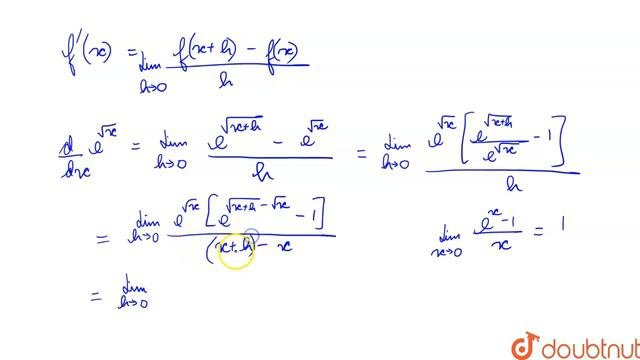 f'(x) = lim h→0 (f(x+h) - f(x))/h
d/dx e^√x = lim h→0 (e^√(x+h) - e^√x)/h = lim h→0 (e^√x [e^√(x+h)/e^√x - 1])/h
= lim h→0 (e^√x [e^(√(x+h) - √x) - 1])/((x+h) - x) lim x→0 (e^x - 1)/x = 1
= lim h→0
doubtnut